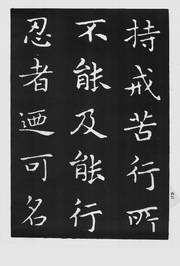 持戒苦行所
不能及能行
忍者迺可名